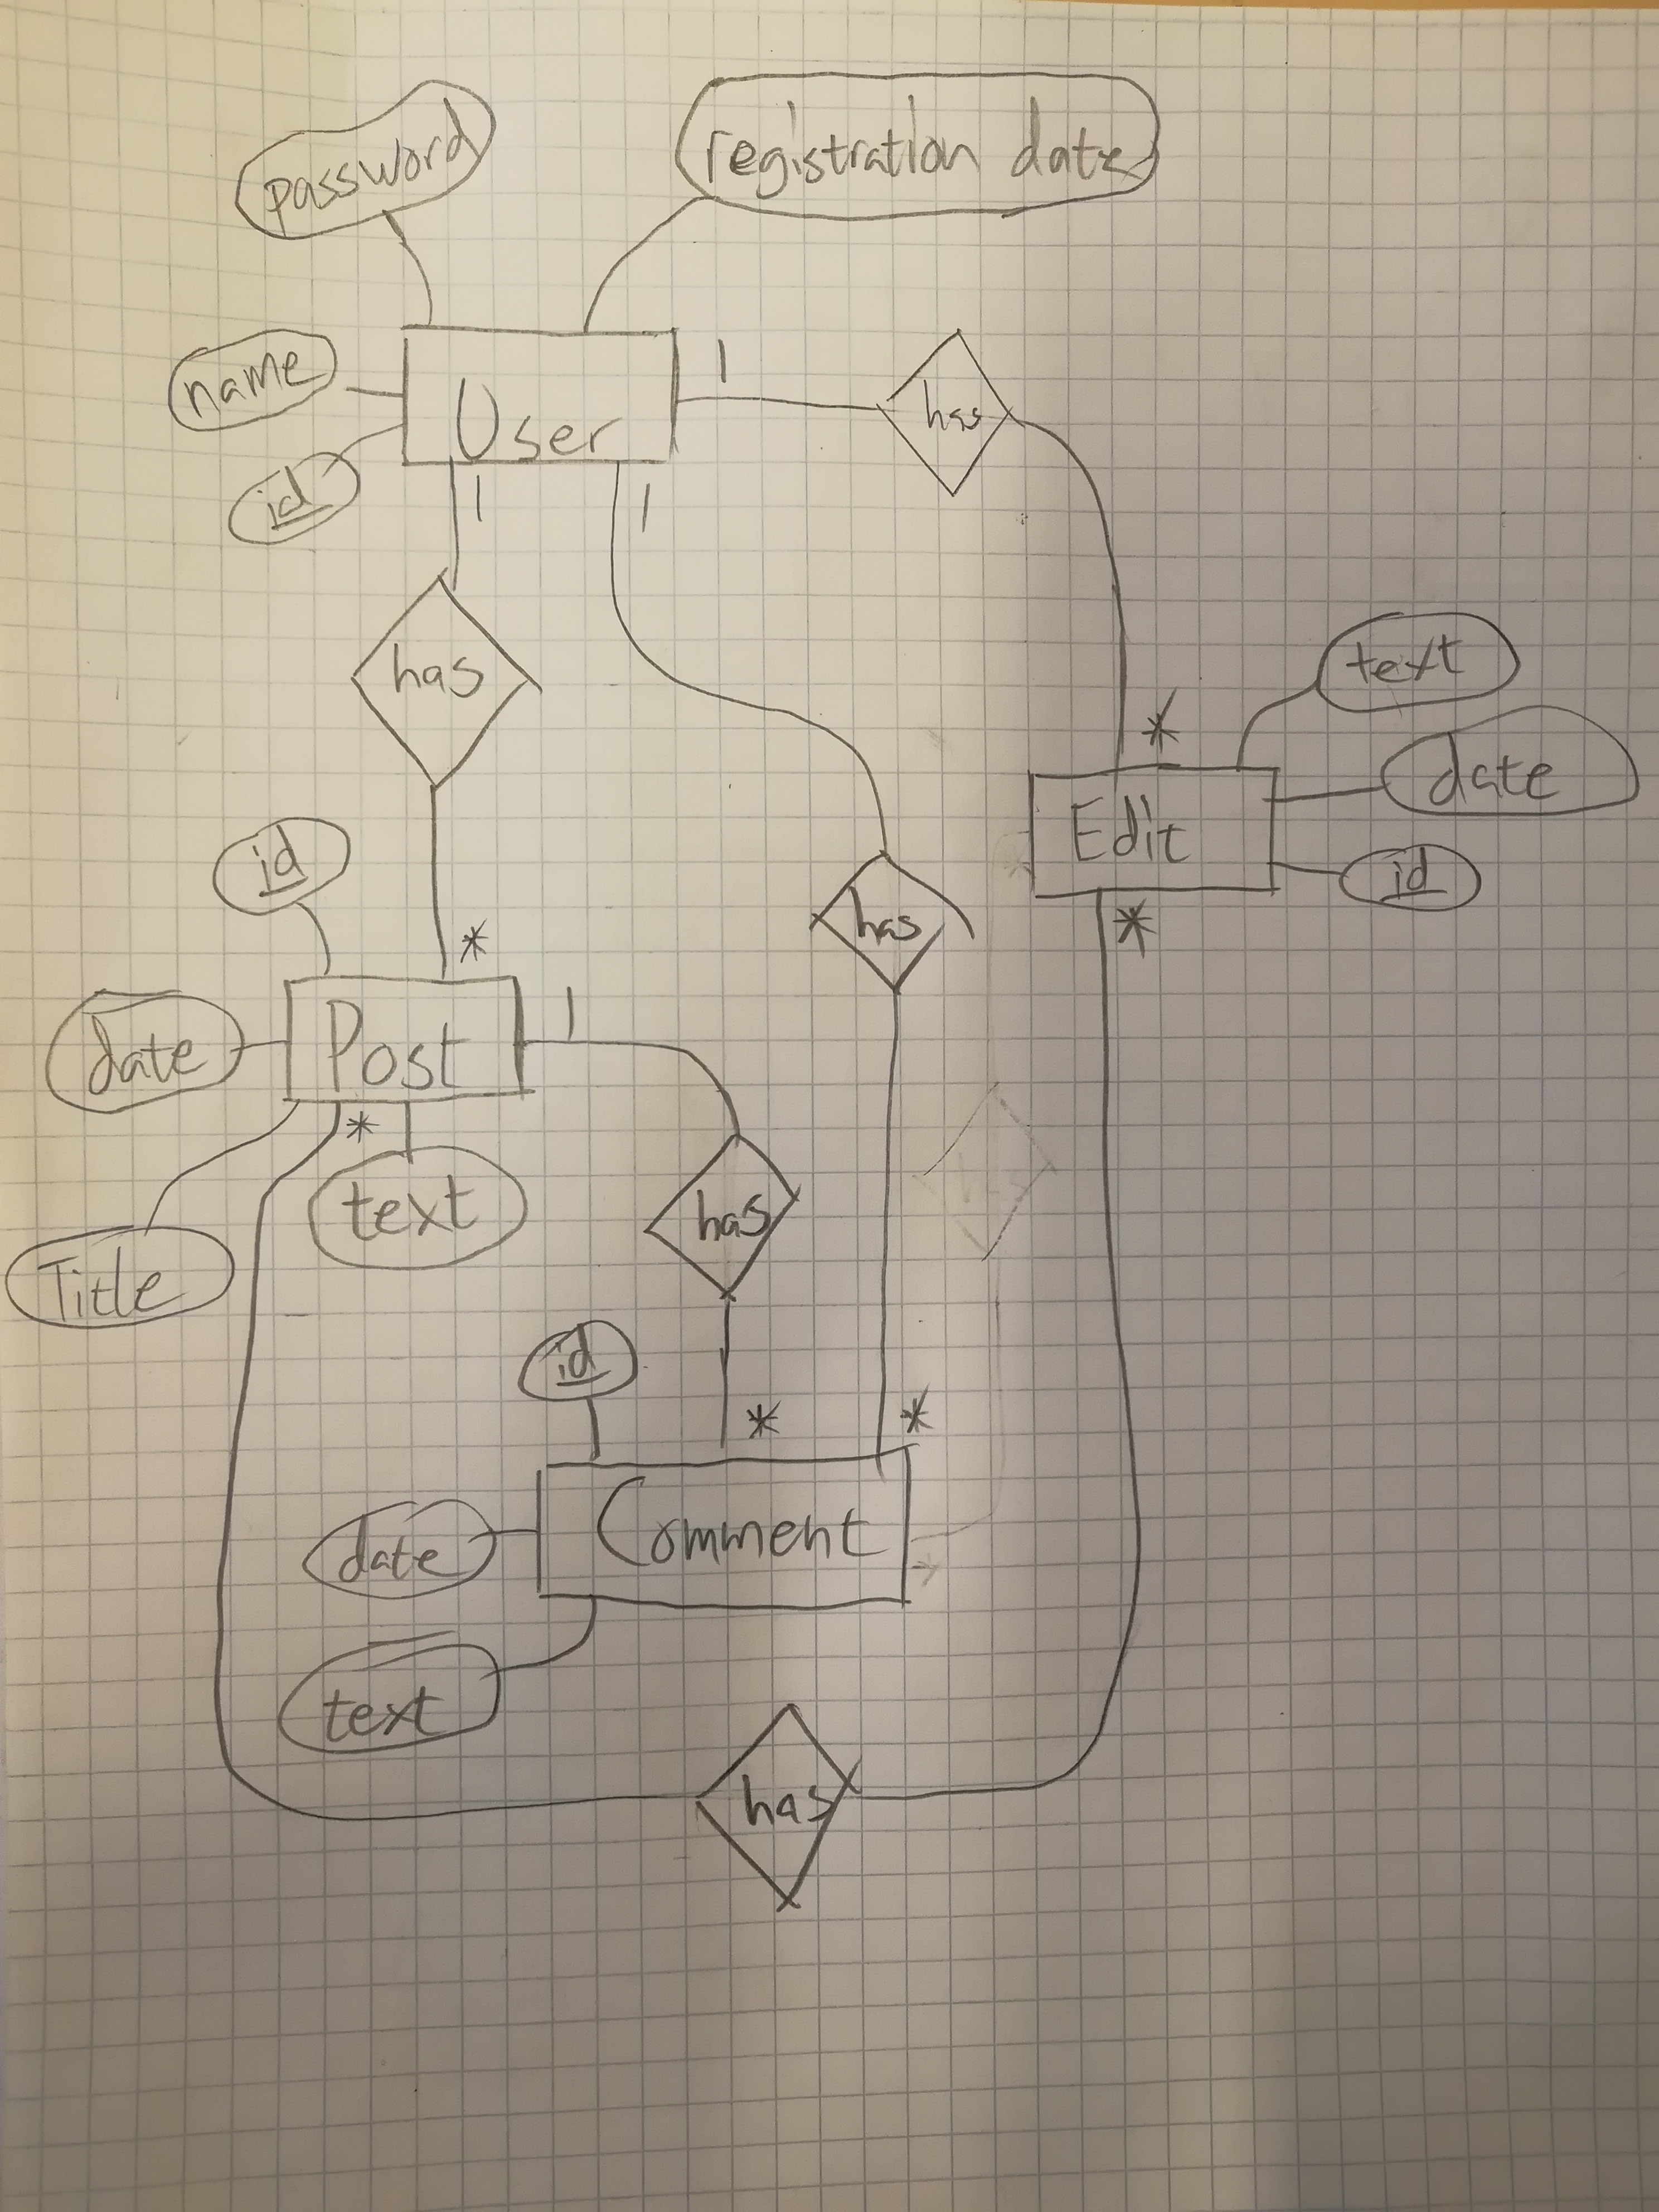 password
registration date
name
User
1
has
id
1
1
has
text
*
date
Edit
id
id
has
*
*
date
Post
1
*
text
has
has
Title
id
*
*
Comment
date
text
has